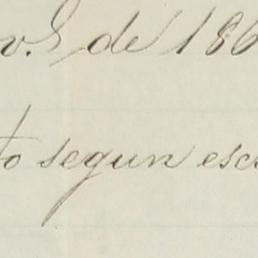 de 186
to segun esc